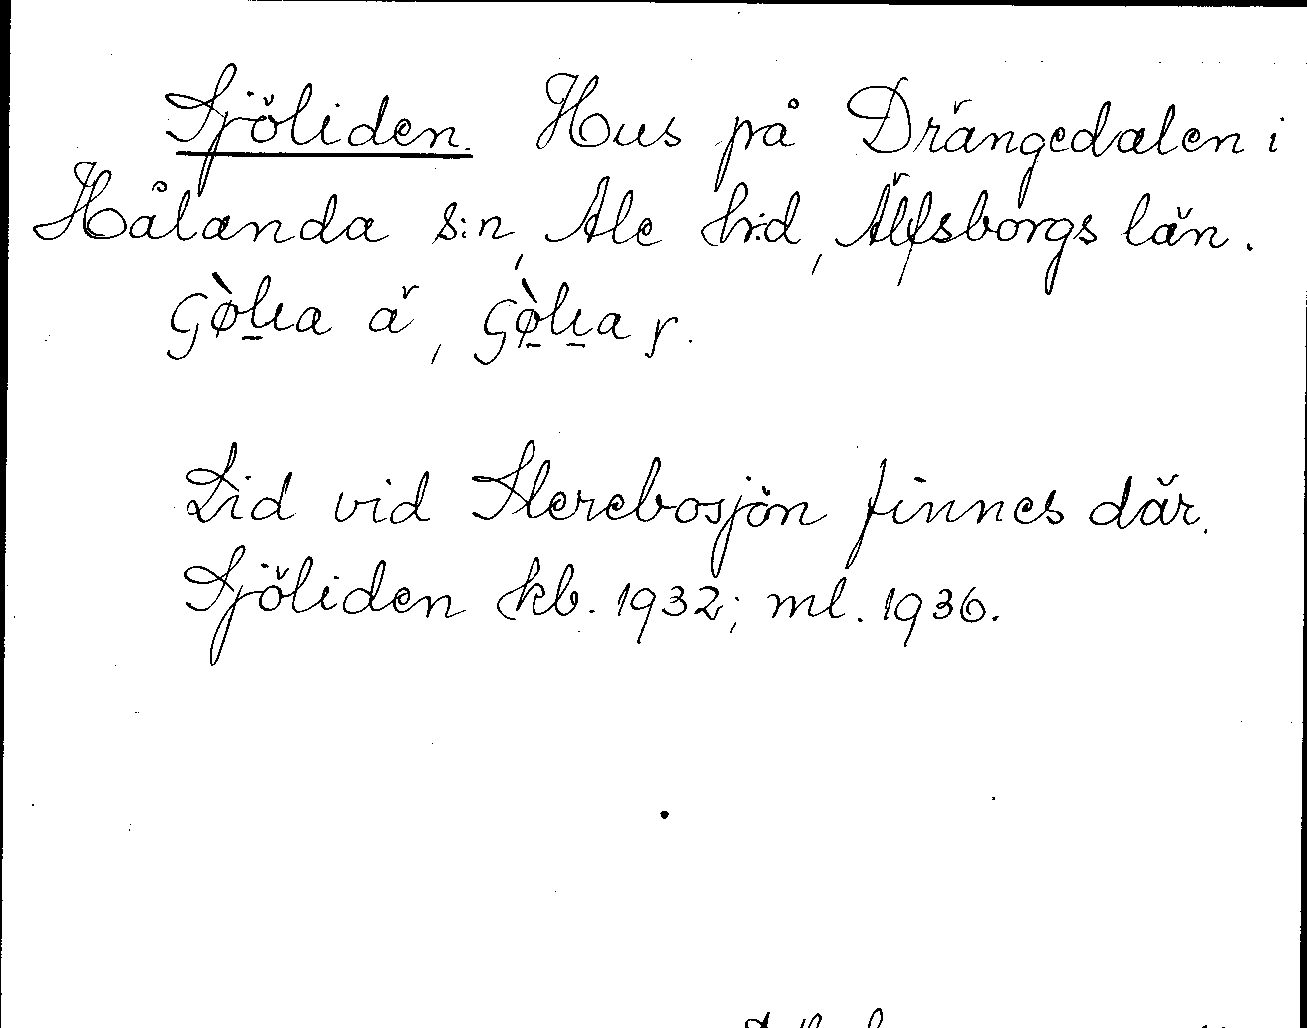 Sjöliden. Hus på Drängedalen i
Hålanda s:n, Ale h:d, Älfsborgs län.
Lid vid Sterebosjön finnes där.
Sjöliden kb. 1932; ml. 1936.